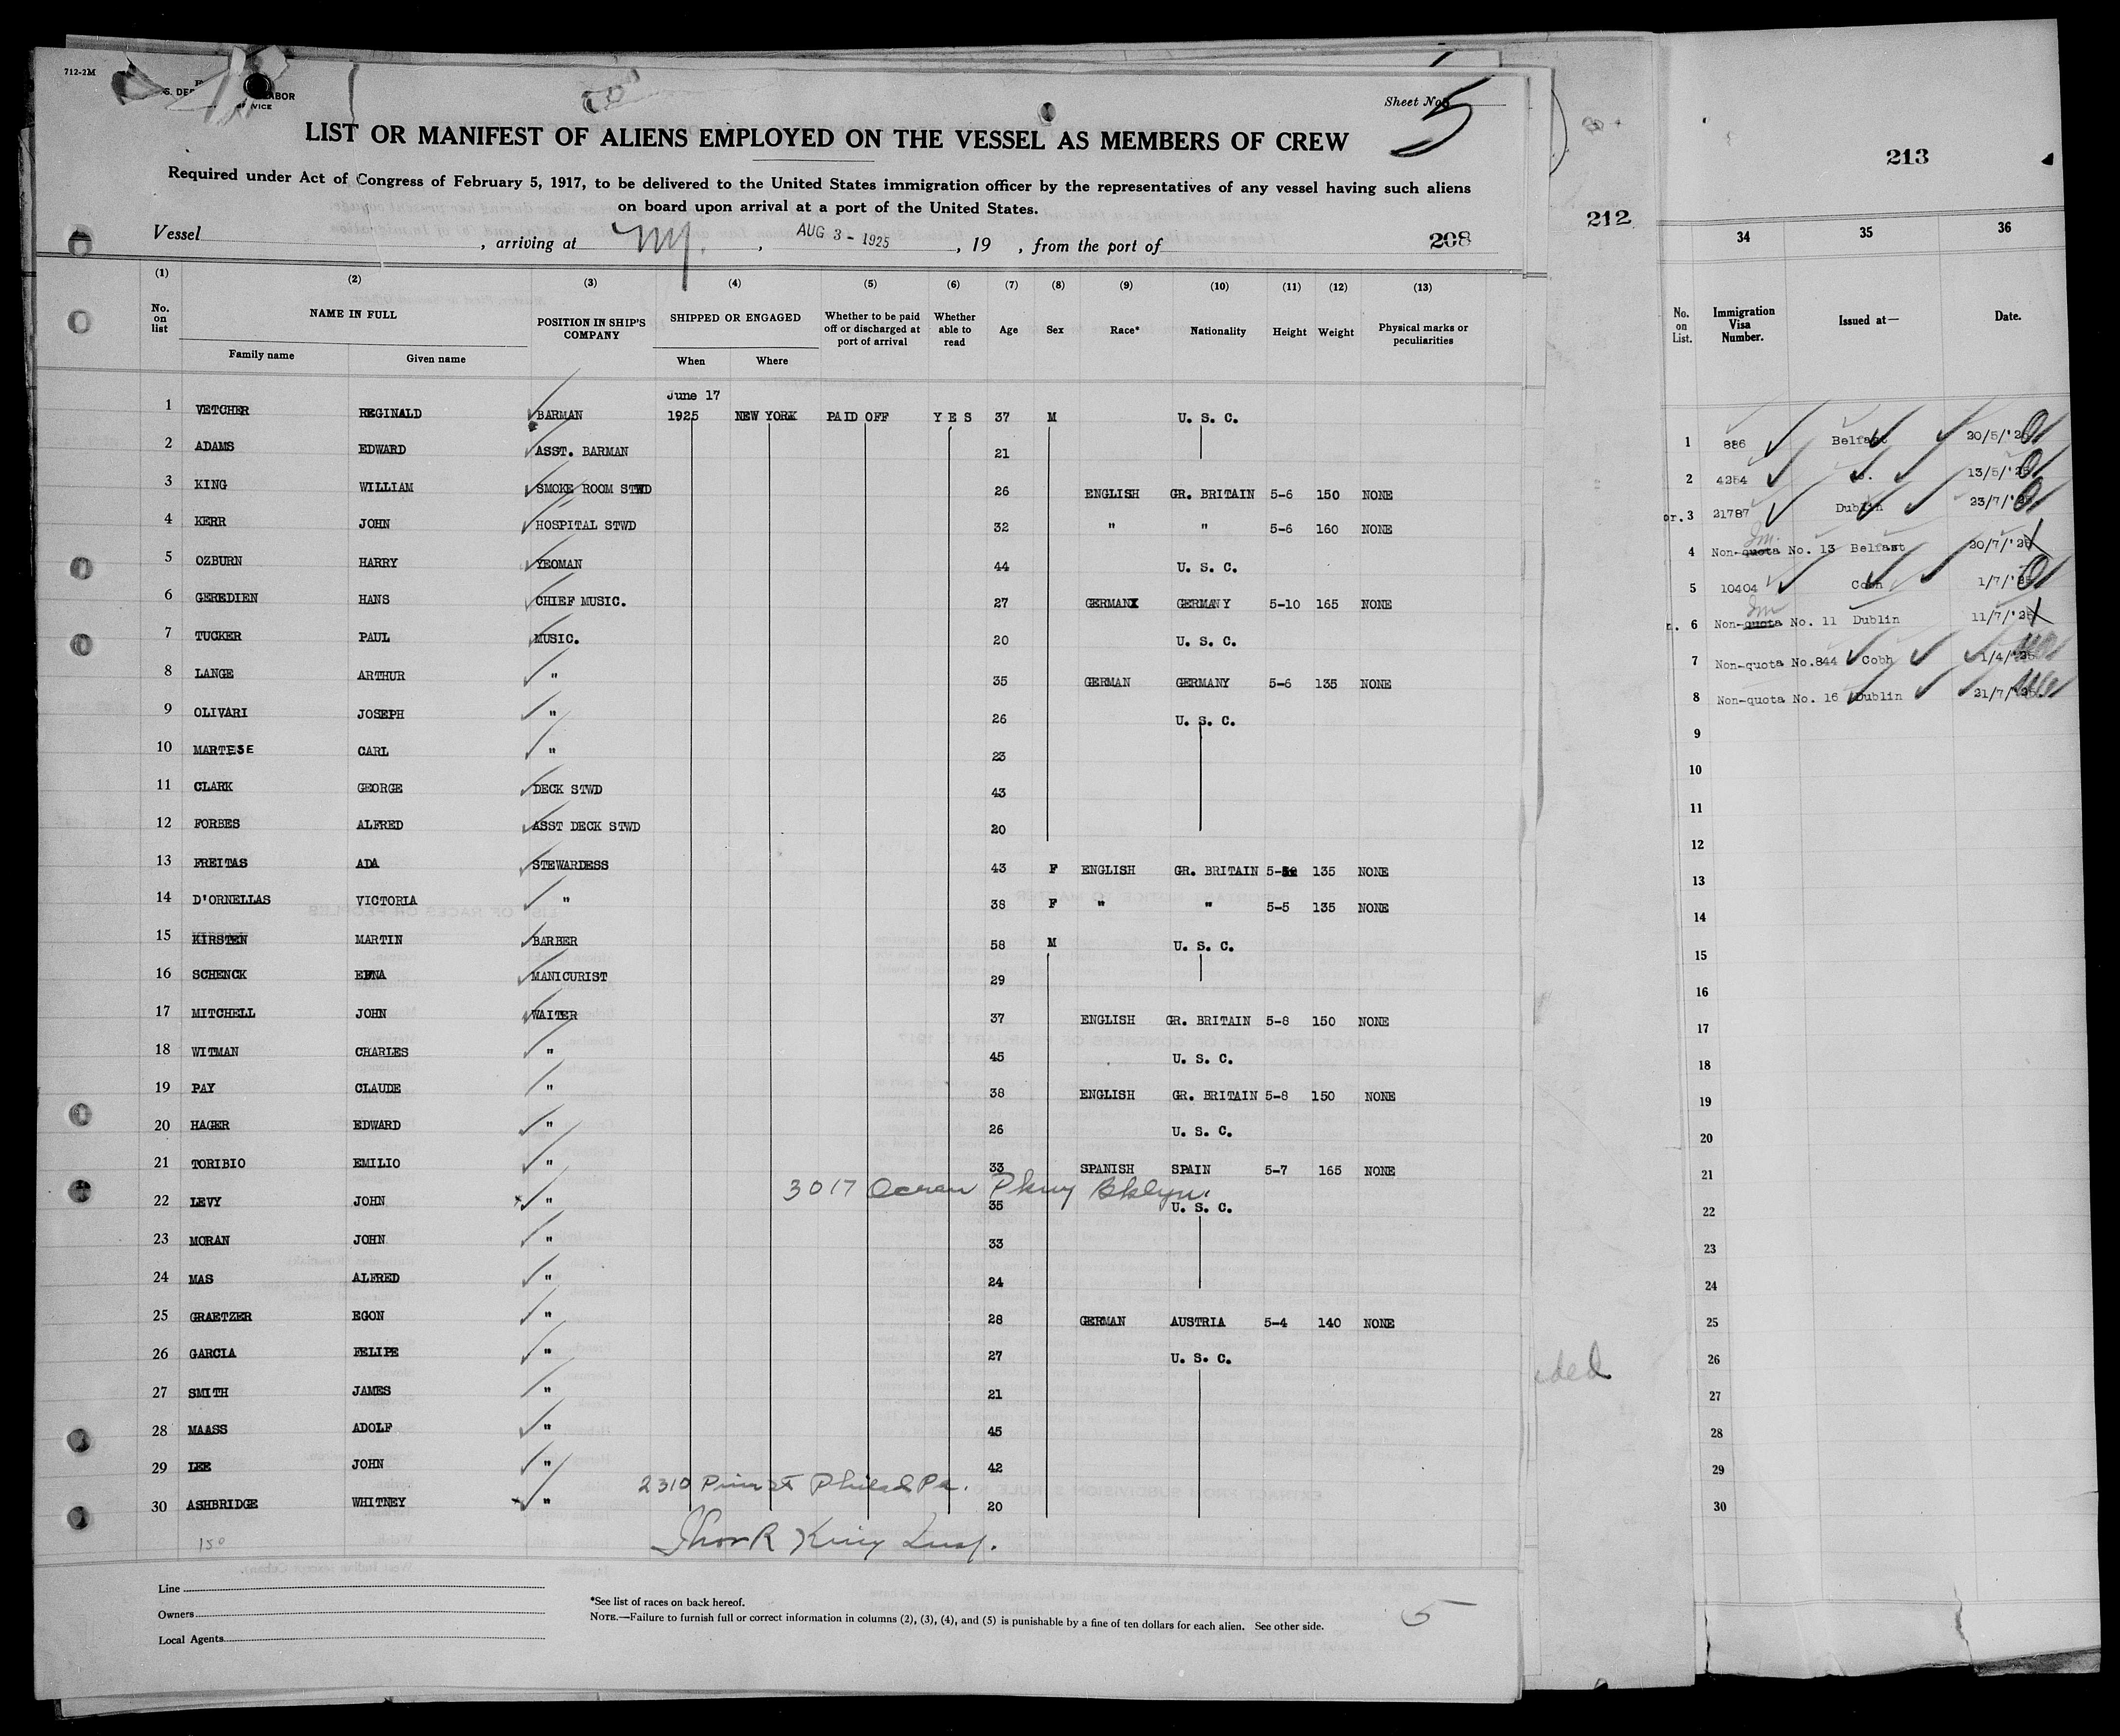 712-2M
LABOR
Sheet No. 5
LIST OR MANIFEST OF ALIENS EMPLOYED ON THE VESSEL AS MEMBERS OF CREW
Required under Act of Congress of February 5, 1917, to be delivered to the United States immigration officer by the representatives of any vessel having such aliens
on board upon arrival at a port of the United States.
Vessel , arriving at N.Y. , AUG 3 - 1925 , 19 , from the port of 208
(1) (2) (3) (4) (5) (6) (7) (8) (9) (10) (11) (12) (13)
No. on list NAME IN FULL POSITION IN SHIP'S COMPANY SHIPPED OR ENGAGED Whether to be paid off or discharged at port of arrival Whether able to read Age Sex Race* Nationality Height Weight Physical marks or peculiarities
Family name Given name When Where
June 17
1 VETCHER REGINALD BARMAN 1925 NEW YORK PAID OFF YES 37 M U. S. C.
2 ADAMS EDWARD ASST. BARMAN 21
3 KING WILLIAM SMOKE ROOM STWD 26 ENGLISH GR. BRITAIN 5-6 150 NONE
4 KERR JOHN HOSPITAL STWD 32 " " 5-6 160 NONE
5 OZBURN HARRY YEOMAN 44 U. S. C.
6 GEREDIEN HANS CHIEF MUSIC. 27 GERMAN GERMANY 5-10 165 NONE
7 TUCKER PAUL MUSIC. 20 U. S. C.
8 LANGE ARTHUR " 35 GERMAN GERMANY 5-6 135 NONE
9 OLIVARI JOSEPH " 26 U. S. C.
10 MARTESE CARL " 23
11 CLARK GEORGE DECK STWD 43
12 FORBES ALFRED ASST DECK STWD 20
13 FREITAS ADA STEWARDESS 43 F ENGLISH GR. BRITAIN 135 NONE
14 D'ORNELLAS VICTORIA " 38 F " " 5-5 135 NONE
15 KIRSTEN MARTIN BARBER 58 M U. S. C.
16 SCHENCK EDNA MANICURIST 29
17 MITCHELL JOHN WAITER 37 ENGLISH GR. BRITAIN 5-8 150 NONE
18 WITMAN CHARLES " 45 U. S. C.
19 PAY CLAUDE " 38 ENGLISH GR. BRITAIN 5-8 150 NONE
20 HAGER EDWARD " 26 U. S. C.
21 TORIBIO EMILIO " 33 SPANISH SPAIN 5-7 165 NONE
3017 Ocean Pkwy Bklyn.
22 LEVY JOHN " 35 U. S. C.
23 MORAN JOHN " 33
24 MAS ALFRED " 24
25 GRAETZER EGON " 28 GERMAN AUSTRIA 5-4 140 NONE
26 GARCIA FELIPE " 27 U. S. C.
27 SMITH JAMES " 21
28 MAASS ADOLF " 45
29 LEE JOHN " 42
2310 Pine St Philad Pa.
30 ASHBRIDGE WHITNEY " 20
150
Thos R King Insp.
Line
Owners
Local Agents
*See list of races on back hereof.
NOTE.—Failure to furnish full or correct information in columns (2), (3), (4), and (5) is punishable by a fine of ten dollars for each alien. See other side.
5
212
213
34 35 36
No. on List. Immigration Visa Number. Issued at— Date.
1 886 Belfast 20/5/'25
2 4254 13/5/'25
3 21787 Dublin 23/7/'25
4 Non-quota No. 13 Belfast 20/7/'25
5 10404 Cobh 1/7/'25
6 Non-quota No. 11 Dublin 11/7/'25
7 Non-quota No.844 Cobh 1/4/'25
8 Non-quota No. 16 Dublin 21/7/'25
9
10
11
12
13
14
15
16
17
18
19
20
21
22
23
24
25
26
27
28
29
30